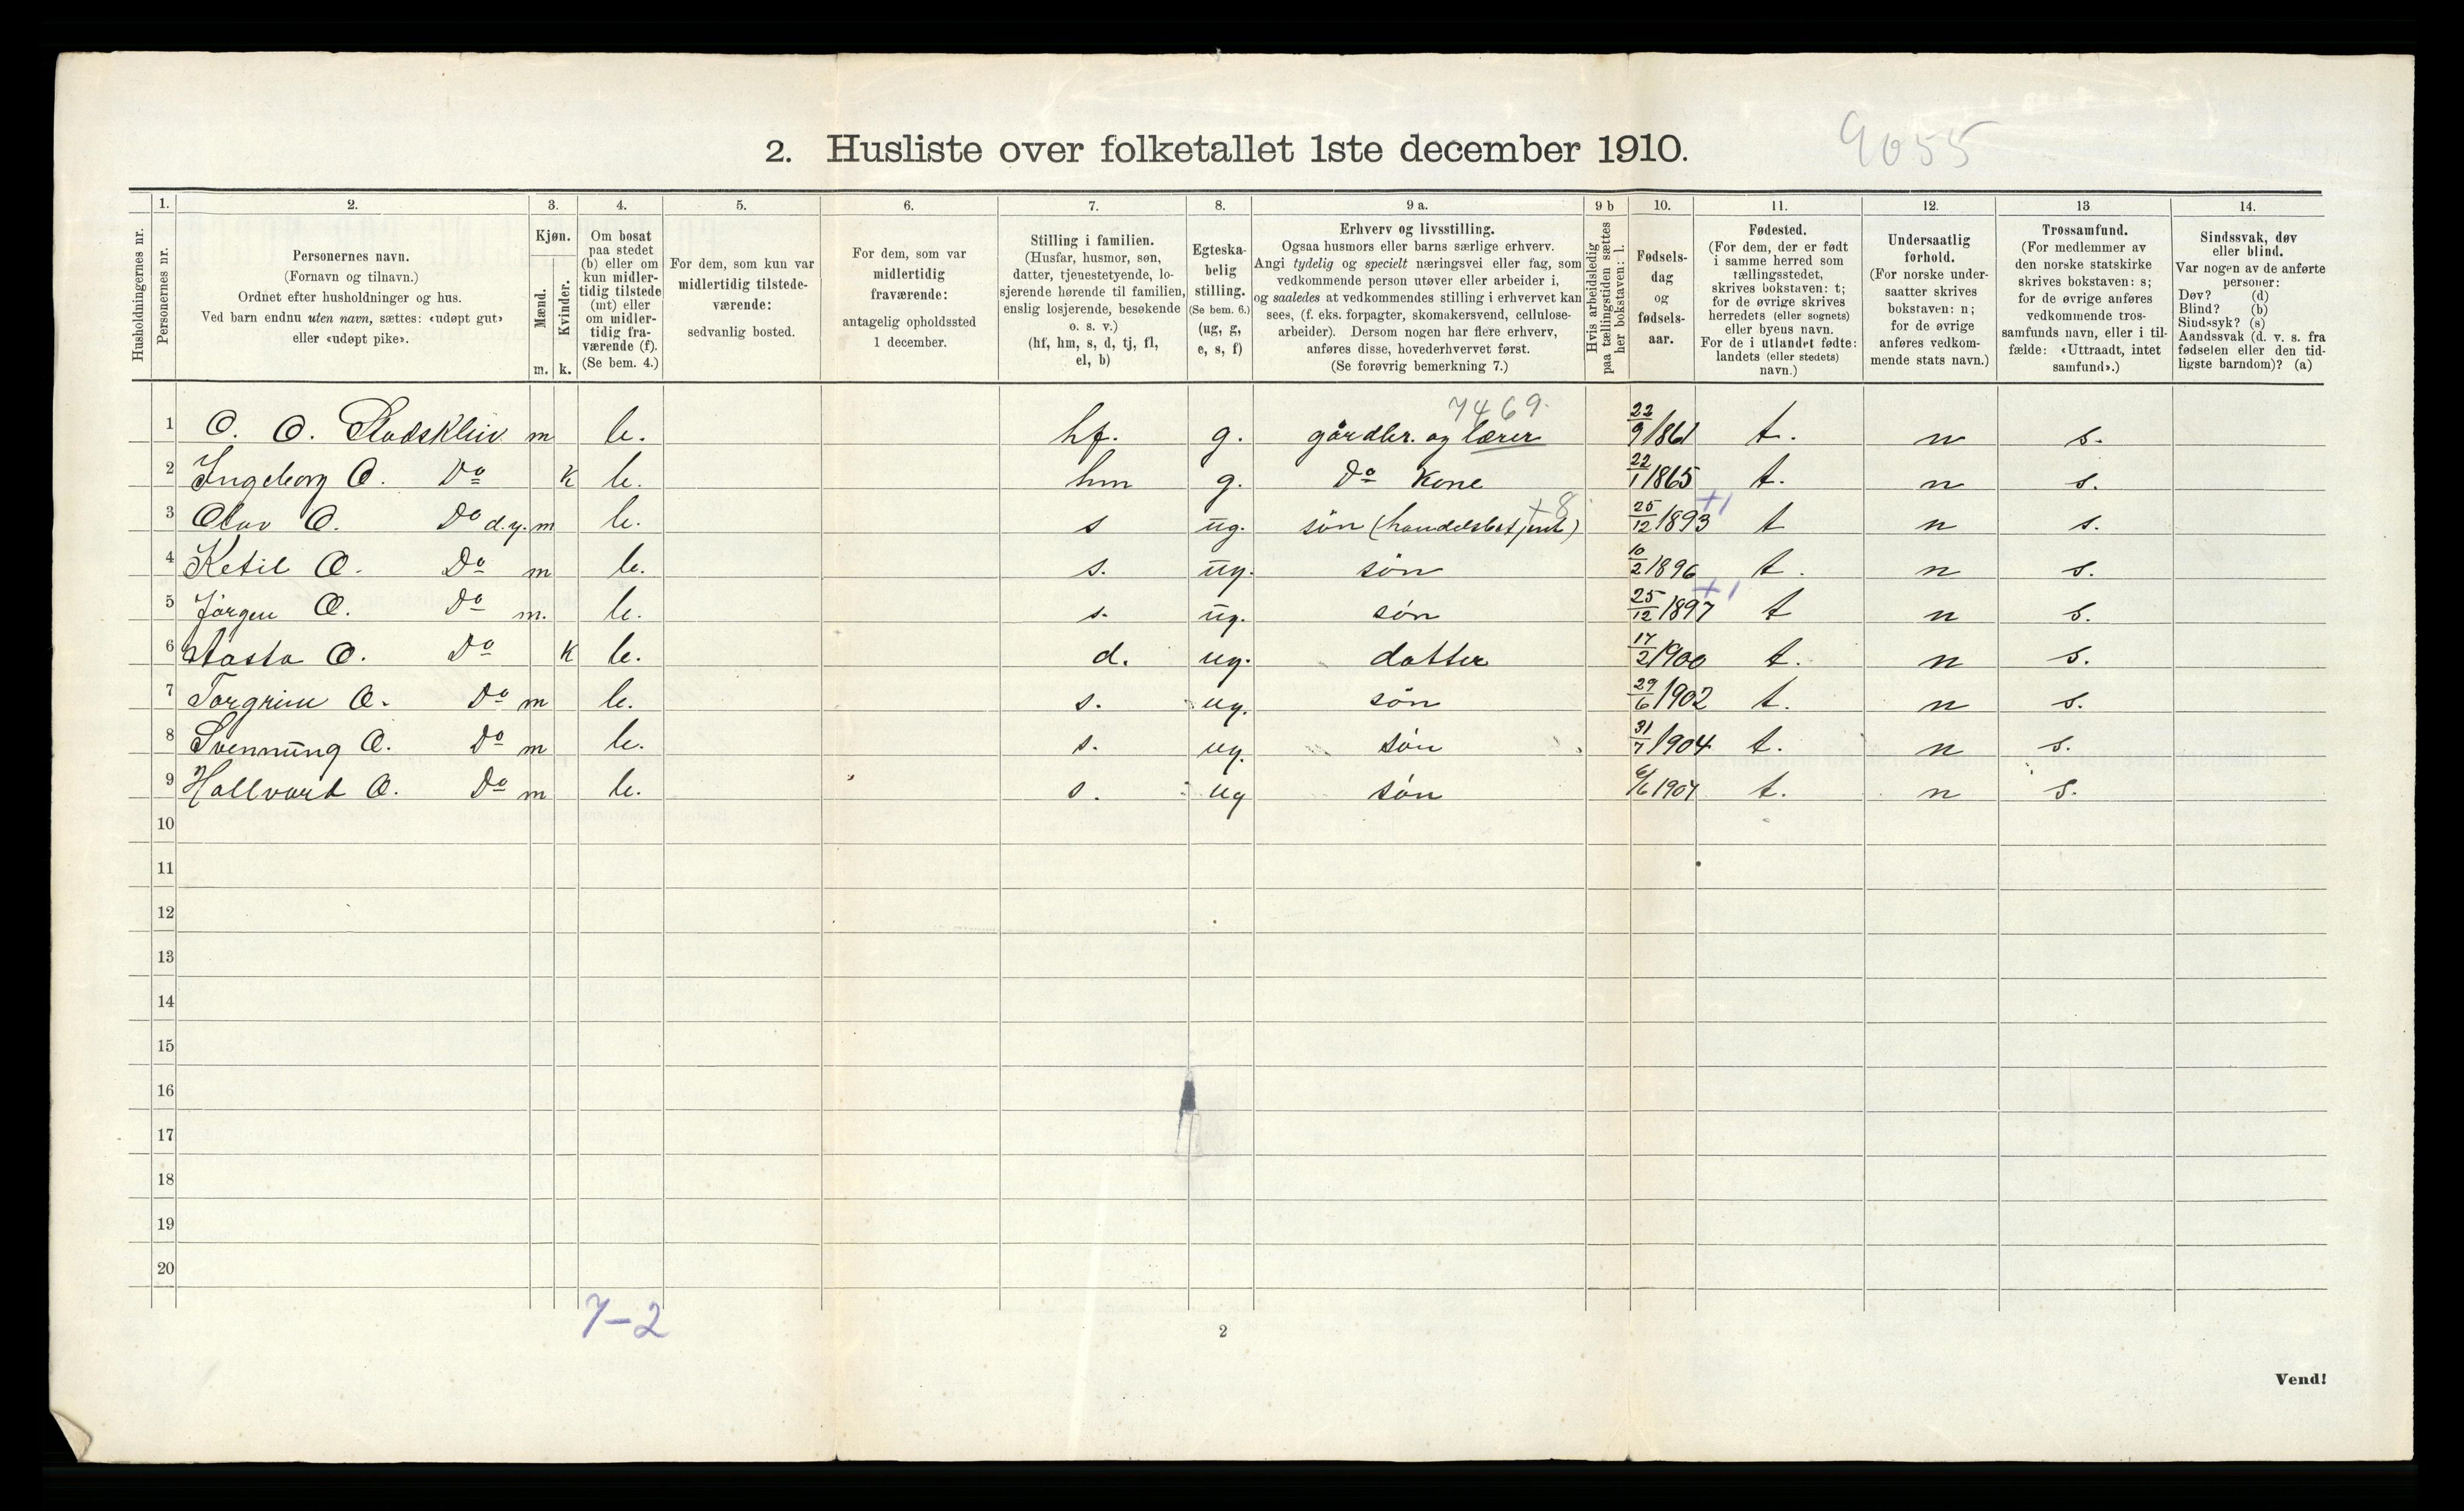 2. Husliste over folketallet 1ste december 1910.
9055
Husholdningernes nr.
1.
Personernes nr.
2.
Personernes navn.
(Fornavn og tilnavn.)
Ordnet efter husholdninger og hus.
Ved barn endnu uten navn, sættes: «udøpt gut»
eller «udøpt pike».
3.
Kjøn.
Mænd.
Kvinder.
m. k.
4.
Om bosat
paa stedet
(b) eller om
kun midler-
tidig tilstede
(mt) eller
om midler-
tidig fra-
værende (f).
(Se bem. 4.)
5.
For dem, som kun var
midlertidig tilstede-
værende:
sedvanlig bosted.
6.
For dem, som var
midlertidig
fraværende:
antagelig opholdssted
1 december.
7.
Stilling i familien.
(Husfar, husmor, søn,
datter, tjenestetyende, lo-
sjerende hørende til familien,
enslig losjerende, besøkende
o. s. v.)
(hf, hm, s, d, tj, fl,
el, b)
8.
Egteska-
belig
stilling.
(Se bem. 6.)
(ug, g,
e, s, f)
9 a.
Erhverv og livsstilling.
Ogsaa husmors eller barns særlige erhverv.
Angi tydelig og specielt næringsvei eller fag, som
vedkommende person utøver eller arbeider i,
og saaledes at vedkommendes stilling i erhvervet kan
sees, (f. eks. forpagter, skomakersvend, cellulose-
arbeider). Dersom nogen har flere erhverv,
anføres disse, hovederhvervet først.
(Se forøvrig bemerkning 7.)
9 b
Hvis arbeidsledig
paa tællingstiden sættes
her bokstaven: l.
10.
Fødsels-
dag
og
fødsels-
aar.
11.
Fødested.
(For dem, der er født
i samme herred som
tællingsstedet,
skrives bokstaven: t;
for de øvrige skrives
herredets (eller sognets)
eller byens navn.
For de i utlandet fødte:
landets (eller stedets)
navn.)
12.
Undersaatlig
forhold.
(For norske under-
saatter skrives
bokstaven: n;
for de øvrige
anføres vedkom-
mende stats navn.)
13
Trossamfund.
(For medlemmer av
den norske statskirke
skrives bokstaven: s;
for de øvrige anføres
vedkommende tros-
samfunds navn, eller i til-
fælde: «Uttraadt, intet
samfund».)
14.
Sindssvak, døv
eller blind.
Var nogen av de anførte
personer:
Døv? (d)
Blind? (b)
Sindssyk? (s)
Aandssvak (d. v. s. fra
fødselen eller den tid-
ligste barndom)? (a)
7469.
1 O. O. Stadskleiv m b. hf. g. gårdbr. og lærer 22/9 1861 t. n s.
2 Ingeborg O. Do k b. hm g. Do Kone 22/1 1865 t. n s.
+8 +1
3 Olav O. Do d.y. m b. s ug. søn (handelsbetjent) 25/12 1893 t n s.
4 Ketil O. Do m b. s. ug. søn 10/2 1896 t. n s.
+1
5 Jørgen O. Do m. b. s. ug. søn 25/12 1897 t n s.
6 Aasta O. Do k b. d. ug. datter 17/2 1900 t. n s.
7 Torgrim O. Do m b. s. ug. søn 29/6 1902 t. n s.
8 Svennung O. Do m b. s. ug. søn 31/7 1904 t. n s.
9 Hallvard O. Do m b. s. ug søn 6/6 1907 t. n s.
10
11
12
13
14
15
16
17
18
19
20
7-2
2
Vend!